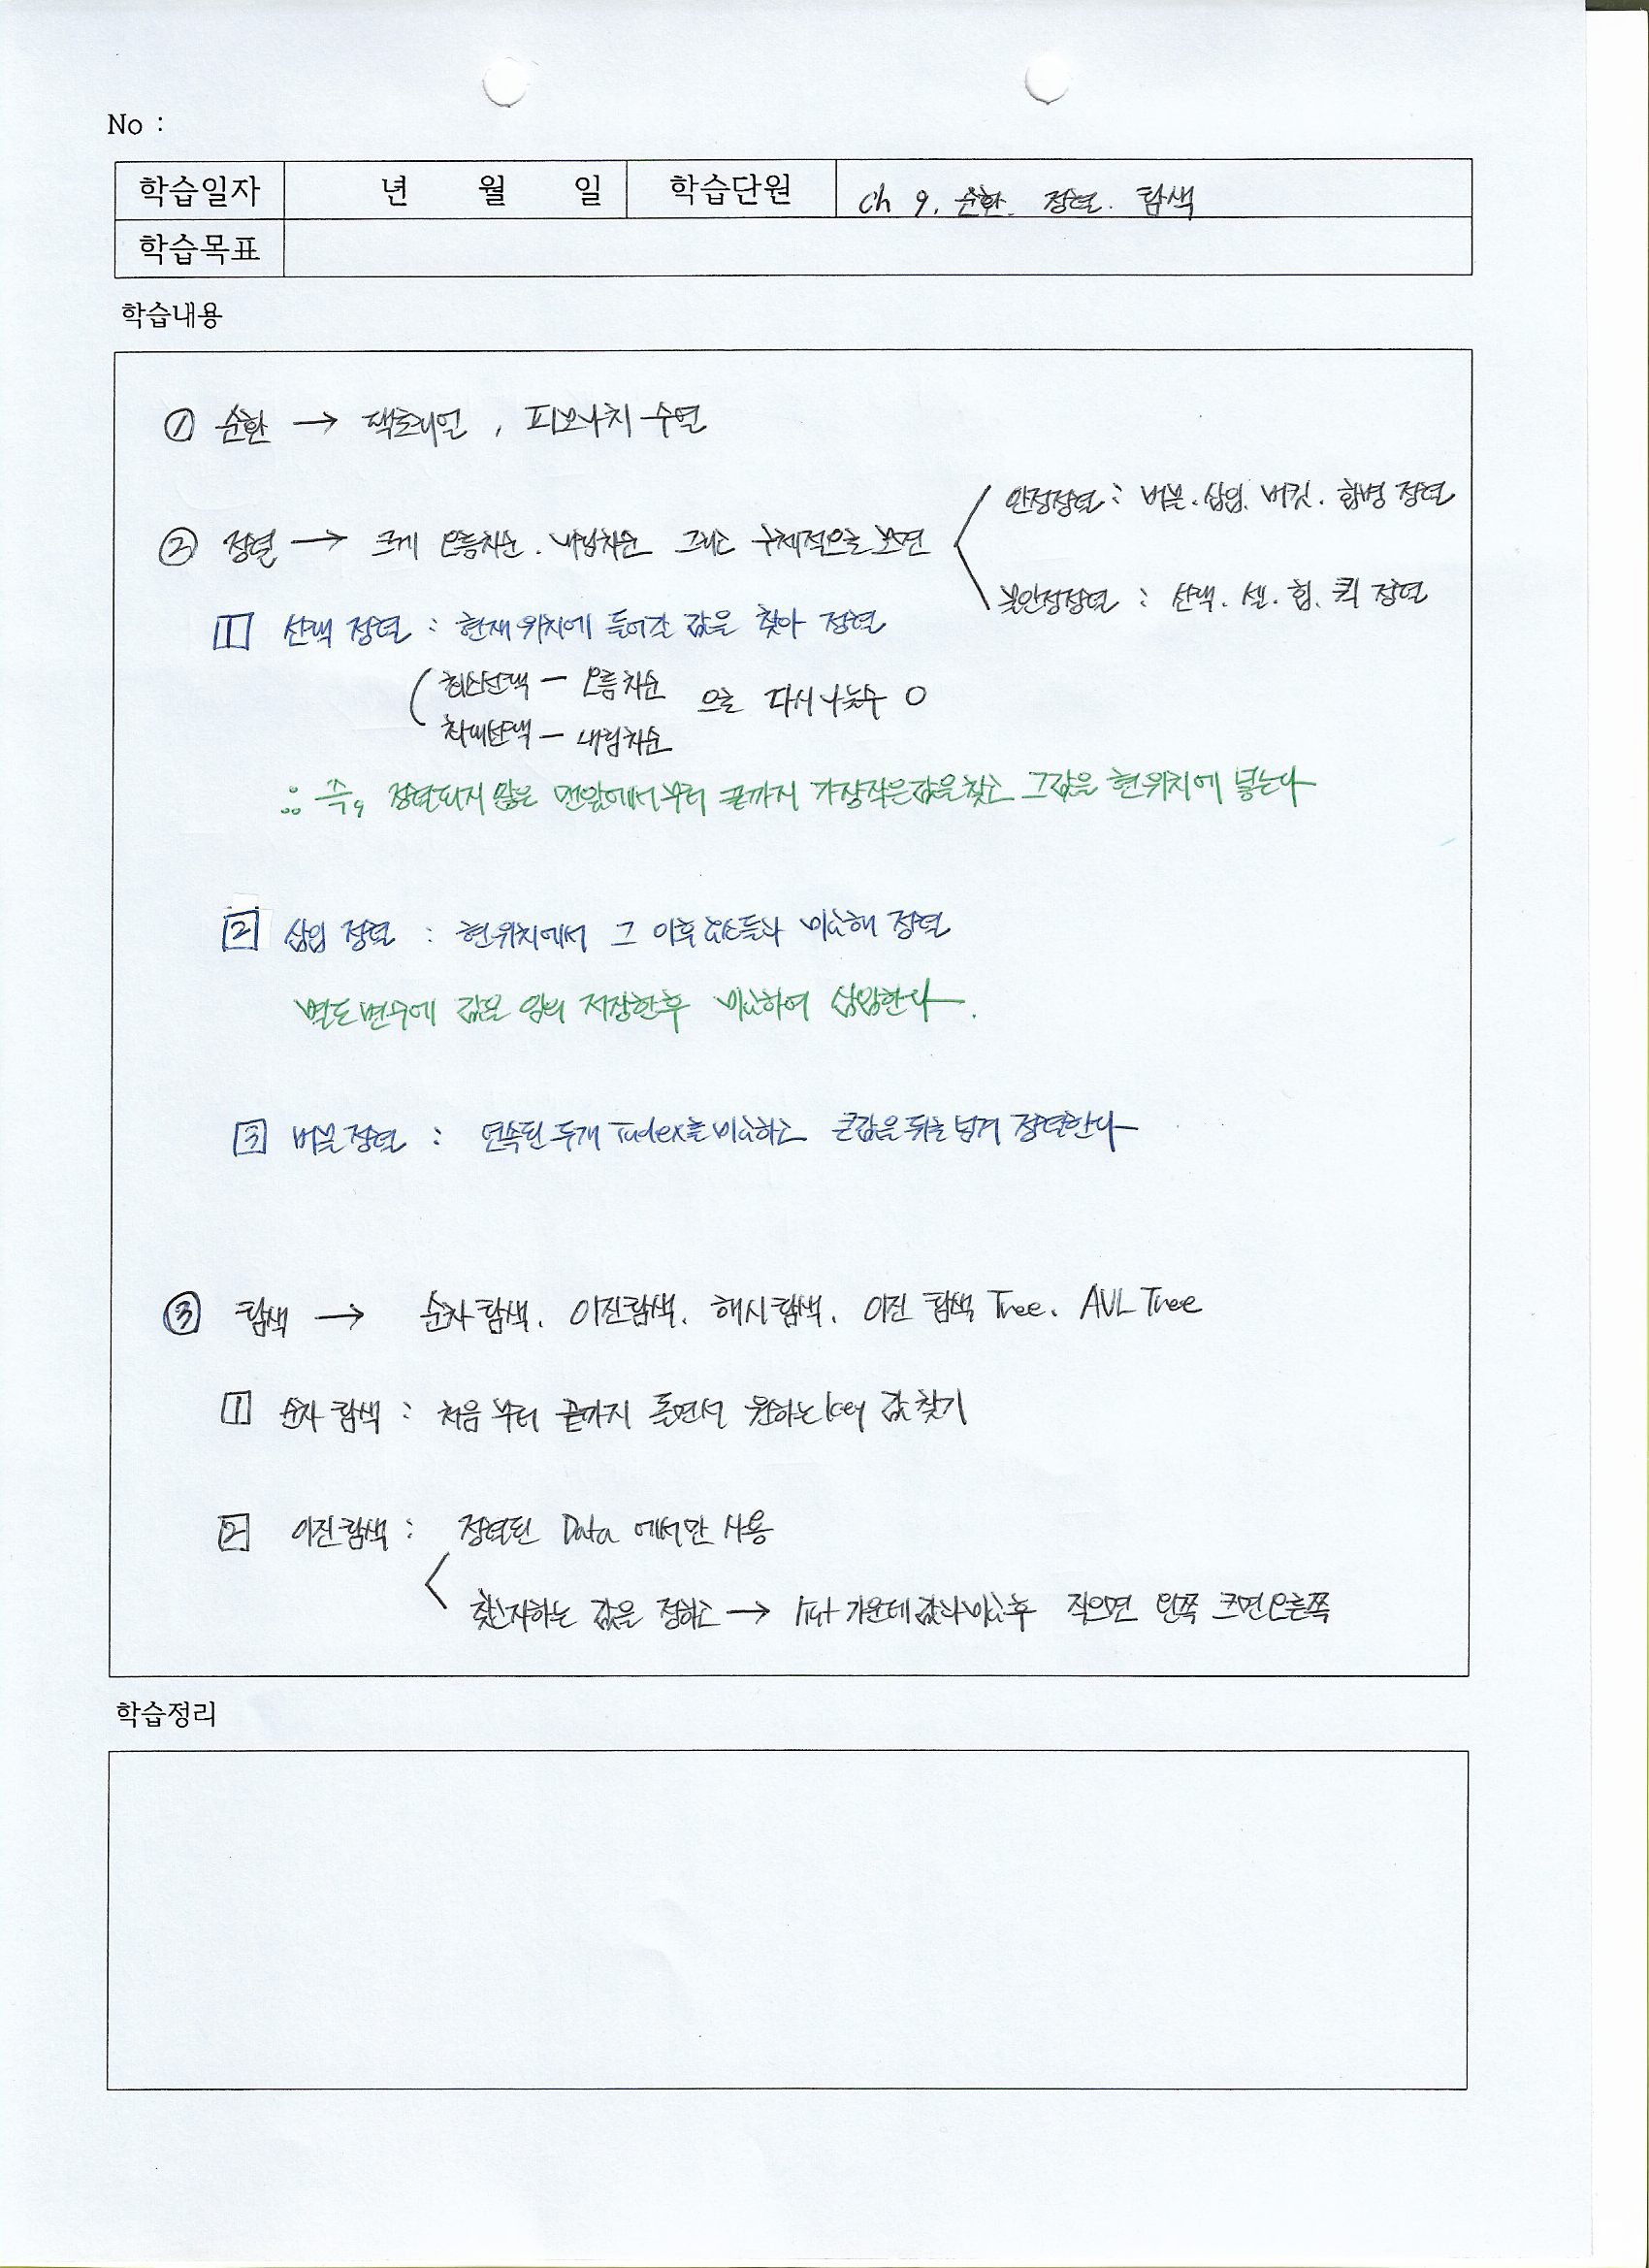 No :
학습일자 년 월 일 학습단원 ch 9. 순환. 정렬. 탐색
학습목표
학습내용
① 순환 → 팩토리얼, 피보나치 수열
② 정렬 → 크게 오름차순. 내림차순 그리고 구체적으로 보면
안정정렬 : 버블. 삽입. 버킷. 합병 정렬
불안정정렬 : 선택. 셸. 힙. 퀵 정렬
1 선택 정렬 : 현재 위치에 들어갈 값을 찾아 정렬
최소선택 - 오름차순
최대선택 - 내림차순
으로 다시 나눌수 O
∴ 즉, 정렬되지 않은 맨앞에서부터 끝까지 가장작은값을찾고 그값을 현위치에 넣는다
2 삽입 정렬 : 현위치에서 그 이후 값들과 비교해 정렬
별도 변수에 값을 임의 저장한후 비교하여 삽입한다.
3 버블 정렬 : 연속된 두개 Index를 비교하고 큰값을 뒤로 넘겨 정렬한다
③ 탐색 → 순차 탐색. 이진탐색. 해시탐색. 이진 탐색 Tree. AVL Tree
1 순차 탐색 : 처음 부터 끝까지 돌면서 원하는 key 값 찾기
2 이진탐색 : 정렬된 Data 에서만 사용
찾고자하는 값을 정하고 → list 가운데 값과 비교후 작으면 왼쪽 크면 오른쪽
학습정리